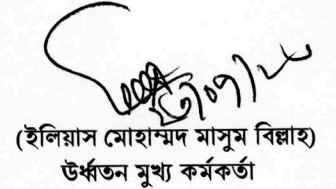 (ইলিয়াস মোহাম্মদ মাসুম বিল্লাহ)
ঊর্ধ্বতন মুখ্য কর্মকর্তা